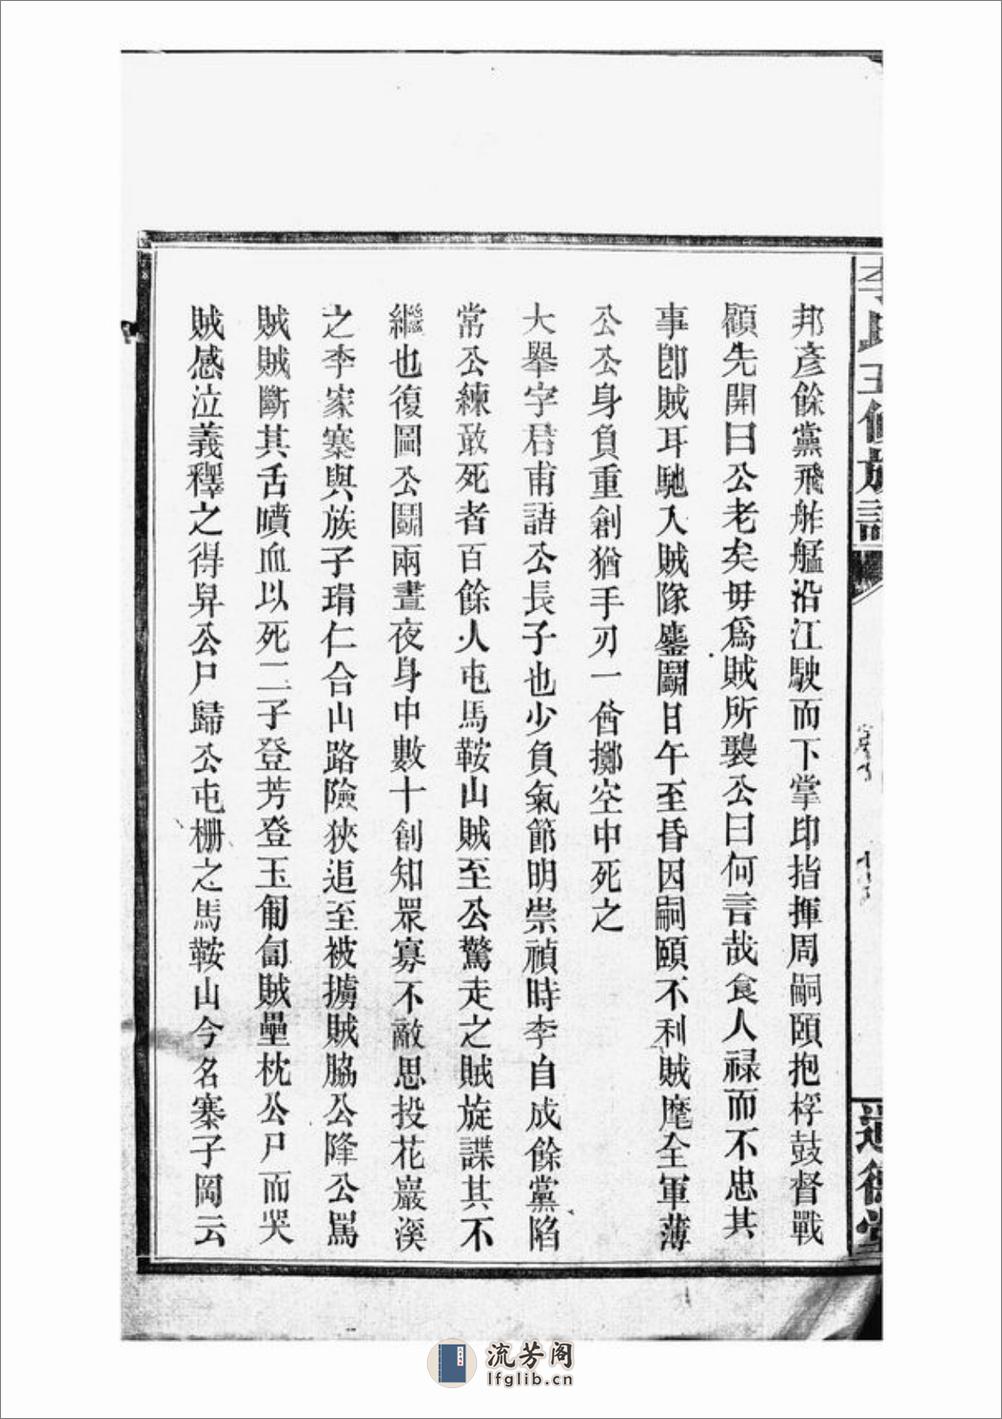 邦彥餘黨飛舴艋沿江駛而下掌印指揮周嗣頤抱桴鼓督戰
顧先開曰公老矣毋爲賊所襲公曰何言哉食人祿而不忠其
事卽賊耳馳入賊隊鏖鬭日午至昏因嗣頤不利賊麾全軍薄
公公身負重創猶手刃一酋擲空中死之
大舉字君甫語公長子也少負氣節明崇禎時李自成餘黨陷
常公練敢死者百餘人屯馬鞍山賊至公驚走之賊旋諜其不
繼也復圖公鬭兩晝夜身中數十創知眾寡不敵思投花巖溪
之李家寨與族子琄仁合山路險狹追至被擄賊脇公降公罵
賊賊斷其舌噴血以死二子登芳登玉匍匐賊壘枕公尸而哭
賊感泣義釋之得舁公尸歸公屯柵之馬鞍山今名寨子岡云
李氏五修族譜
道德堂
流芳阁
lfglib.cn